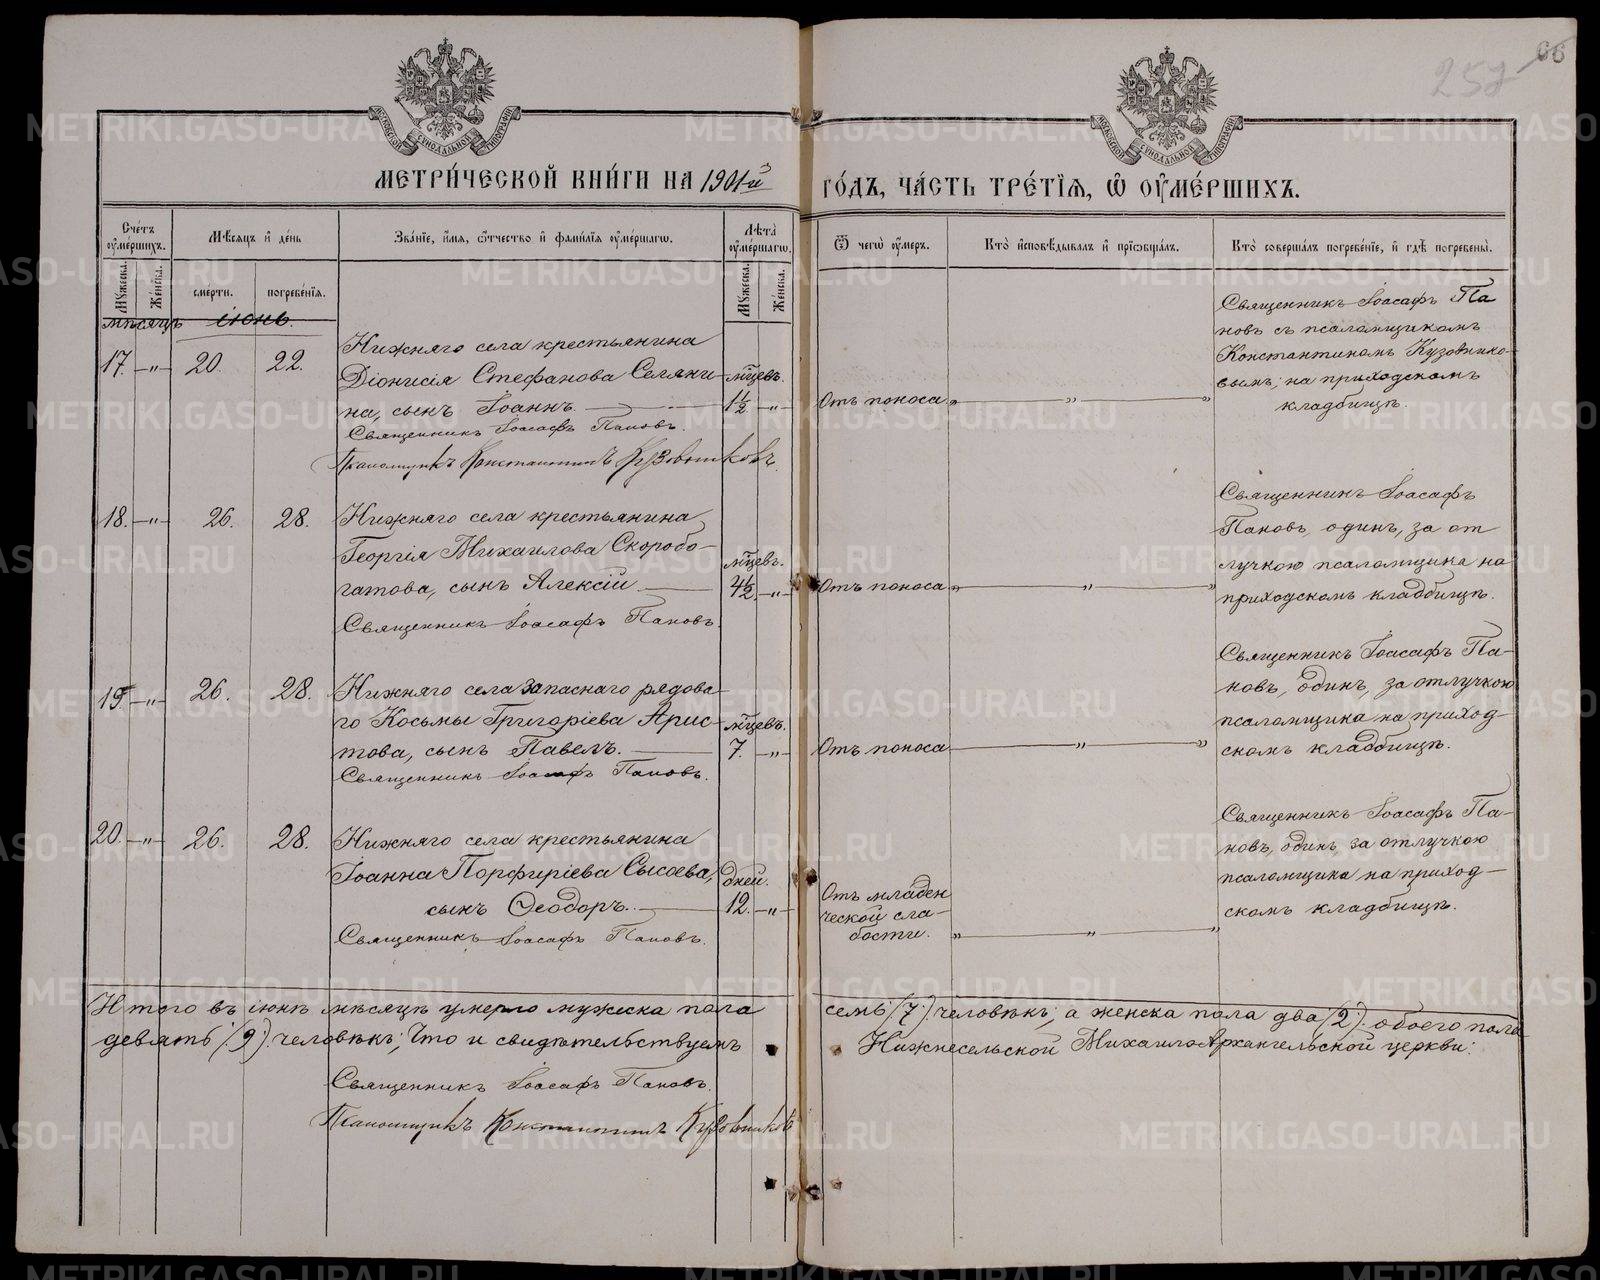 257 66
МЕТРИ́ЧЕСКОЙ КНИ́ГИ НА 1901-й ГО́ДЪ, ЧА́СТЬ ТРЕ́ТЇѦ, Ѡ ОУМЕ́РШИХЪ.
Сче́тъ оуме́ршихъ.
Мѣ́сяцъ и де́нь
Зва́нїе, и́мя, о́тчество и фами́лїя оуме́ршагѡ.
Лѣта̀ оуме́ршагѡ.
Ѿ чегѡ̀ оу́меръ.
Кто̀ исповѣ́дывалъ и прїѡбща́лъ.
Кто̀ соверша́лъ погребе́нїе, и гдѣ̀ погребены̀.
Мꙋ́жеска.
Же́нска.
сме́рти.
погребе́нїя.
Мꙋ́жеска.
Же́нска.
мѣсяцъ іюнь.
17. —„— 20. 22.
Нижняго села крестьянина
Діонисія Стефанова Селяни-
на, сынъ Іоаннъ.
Священникъ Іоасафъ Пановъ.
Псаломщикъ Константинъ Кузовниковъ.
мѣцевъ.
1½ —„—
Отъ поноса „ „ „
Священникъ Іоасафъ Па
новъ съ псаломщикомъ
Константиномъ Кузовнико-
вымъ; на приходскомъ
кладбищѣ.
18. —„— 26. 28.
Нижняго села крестьянина
Георгія Михаилова Скоробо-
гатова, сынъ Алексій
Священникъ Іоасафъ Пановъ.
мѣцевъ.
4½. —„—
Отъ поноса „ „ „
Священникъ Іоасафъ
Пановъ, одинъ, за от
лучкою псаломщика на
приходскомъ кладбищѣ.
19. —„— 26. 28.
Нижняго села запаснаго рядова-
го Косьмы Григоріева Арис-
това, сынъ Павелъ.
Священникъ Іоасафъ Пановъ.
мѣцевъ.
7. —„—
Отъ поноса „ „
Священникъ Іоасафъ Па-
новъ, одинъ, за отлучкою
псаломщика на приход-
скомъ кладбищѣ.
20. —„— 26. 28.
Нижняго села крестьянина
Іоанна Порфиріева Сысоева,
сынъ Ѳеодоръ.
Священникъ Іоасафъ Пановъ.
дней.
12. —„—
Отъ младен
ческой сла-
бости. „ „ „
Священникъ Іоасафъ Па-
новъ, одинъ, за отлучкою
псаломщика на приход-
скомъ кладбищѣ.
Итого въ іюнѣ мѣсяцѣ умерло мужеска пола семь /:7:/ человѣкъ; а женска пола два /:2:/ обоего пола
девять /:9:/ человѣкъ; Что и свидѣтельствуемъ Нижнесельской Михаило Архангельской церкви:
Священникъ Іоасафъ Пановъ.
Псаломщикъ Константинъ Кузовниковъ
METRIKI.GASO-URAL.RU